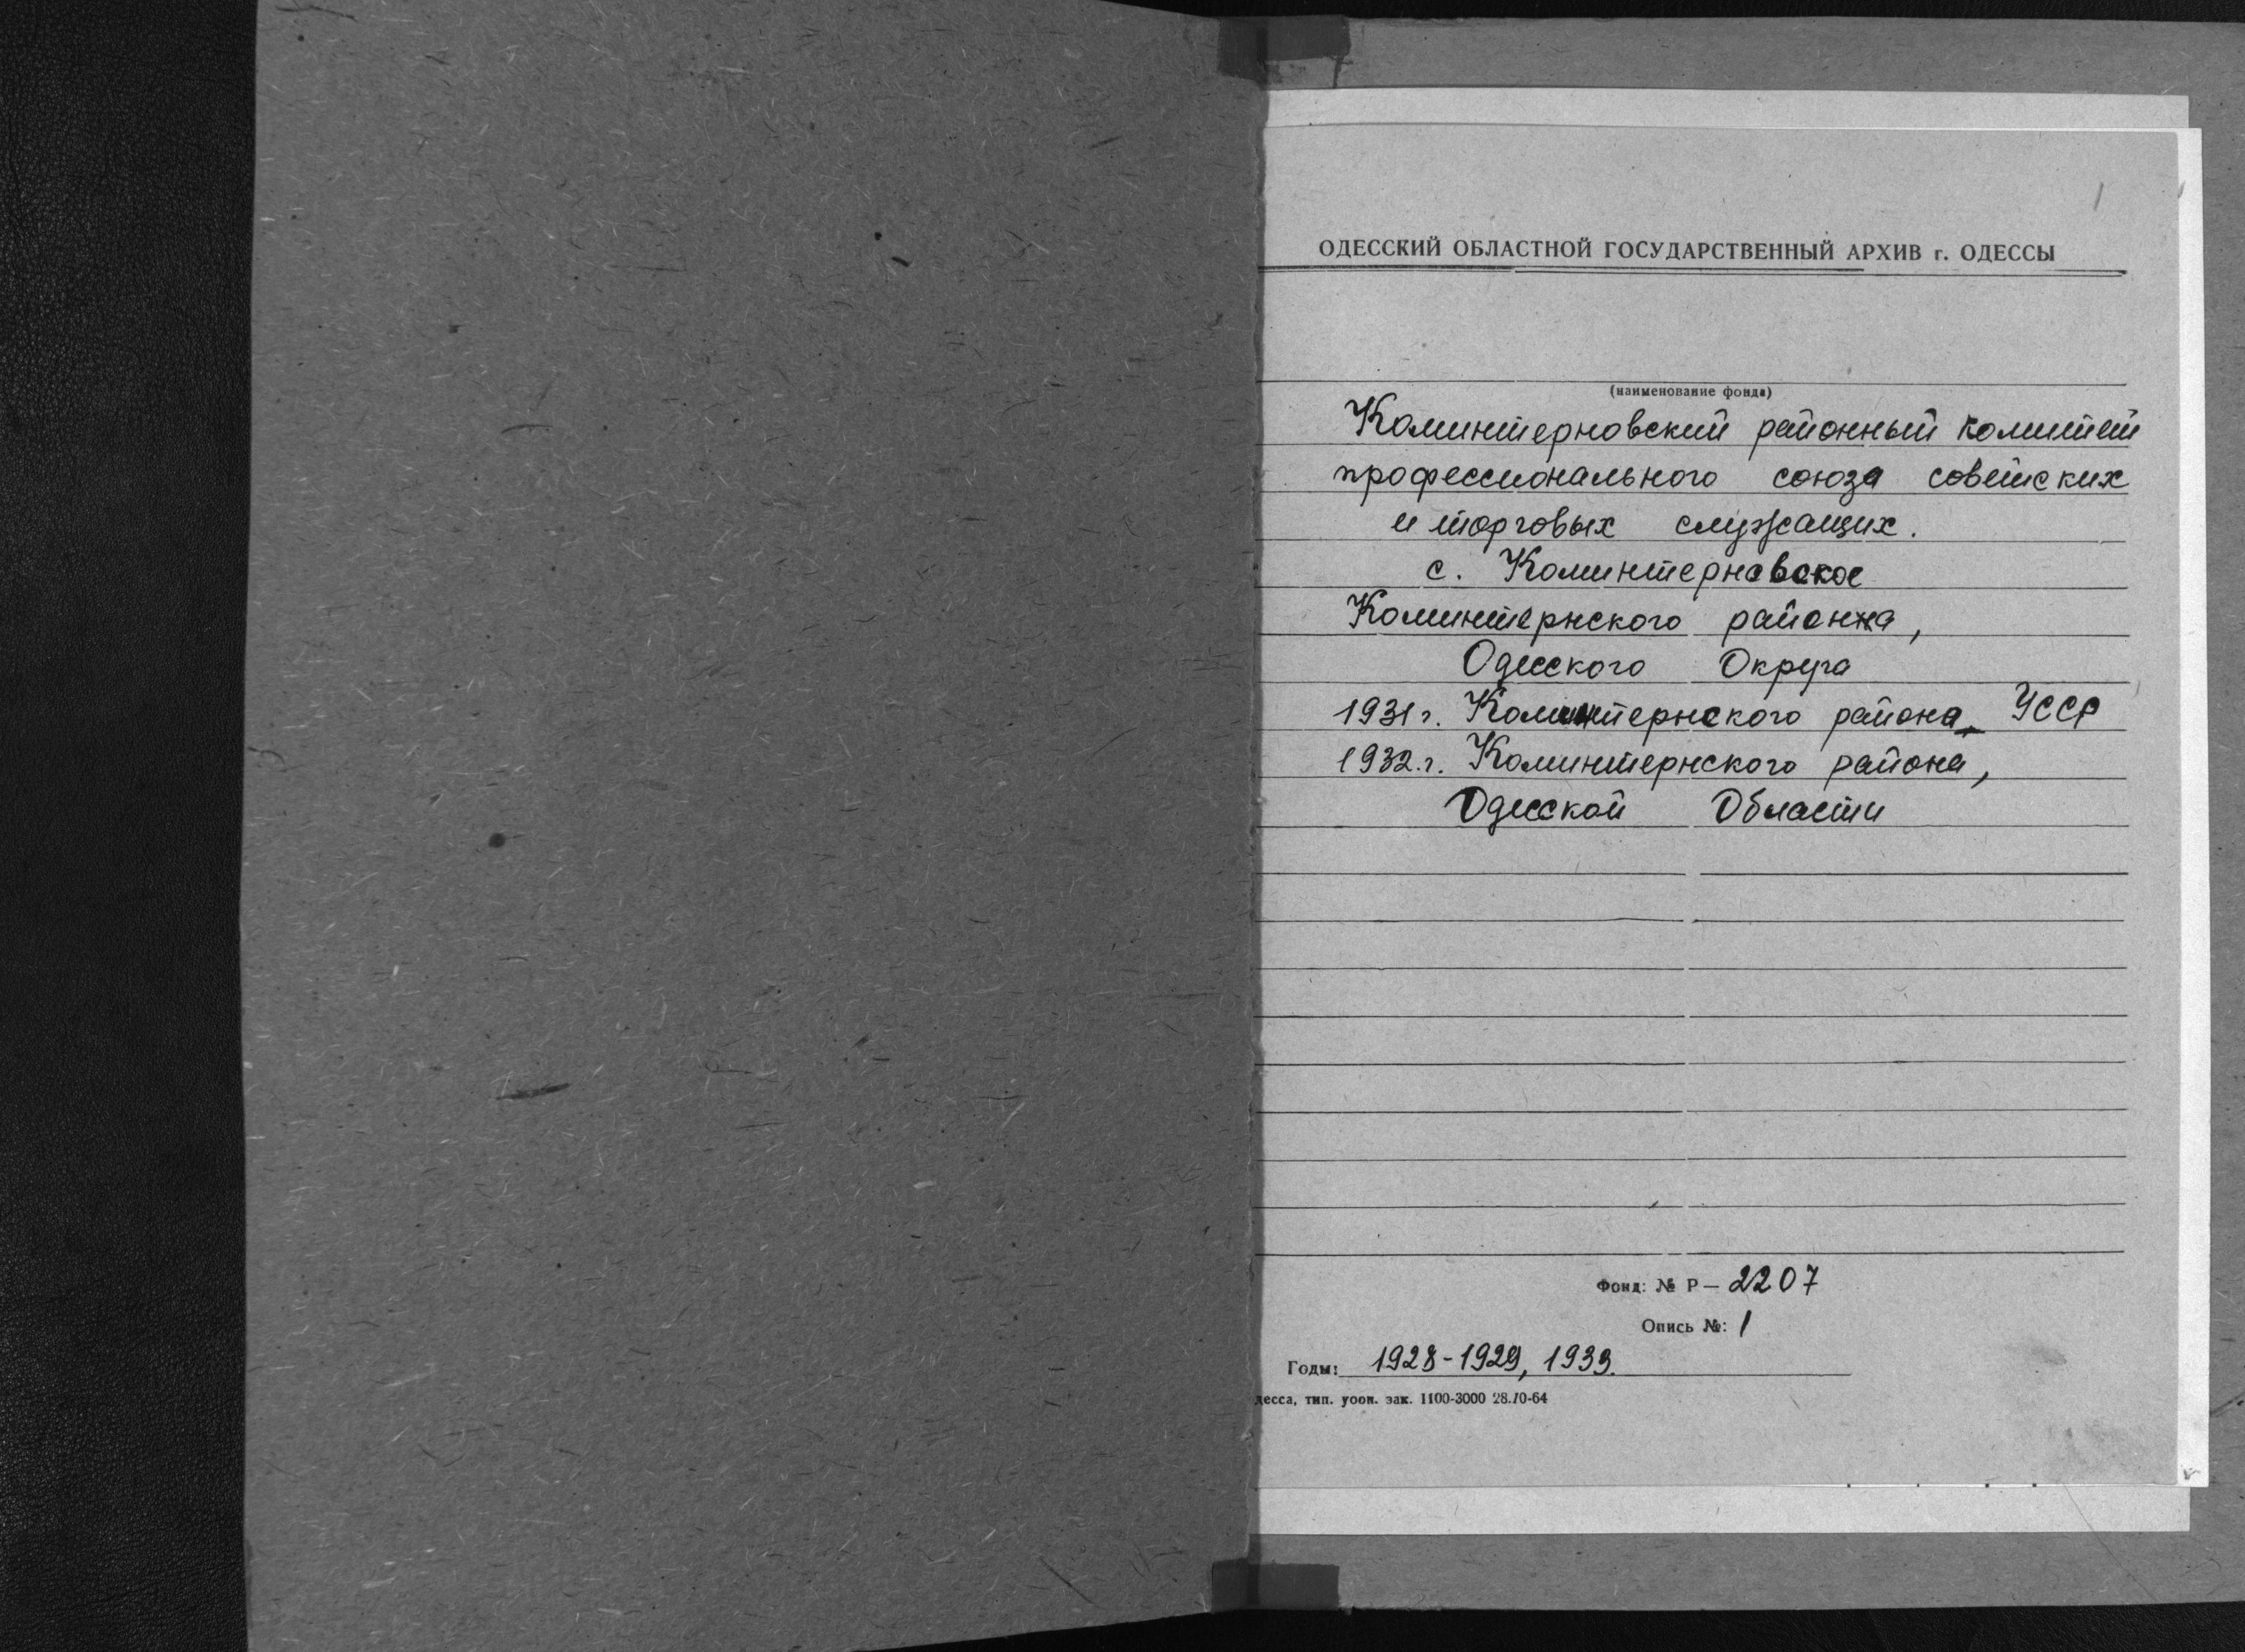 1
ОДЕССКИЙ ОБЛАСТНОЙ ГОСУДАРСТВЕННЫЙ АРХИВ г. ОДЕССЫ
(наименование фонда)
Коминтерновский районный комитет
профессионального союза советских
и торговых служащих.
с. Коминтерновское
Коминтернского района,
Одесского Округа
1931 г. Коминтернского района, УССР
1932.г. Коминтернского района,
Одесской Области
Фонд: № Р— 2207
Опись №: 1
Годы: 1928-1929, 1933.
десса, тип. уоои. зак. 1100-3000 28.10-64